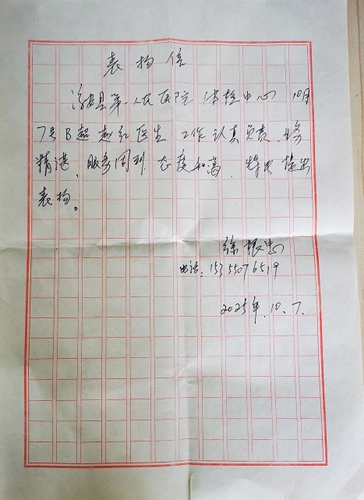 表扬信
县第一人民医院 体检中心 10月
7号B超赵红医生 工作认真负责、
精湛、服务周到、态度和蔼、特此提出
表扬。
徐
电话:15355076519
2025年.10.7.